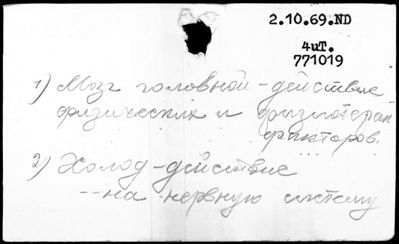 2.10.69.ND
4иТ.
771019
1) Мозг головной - действие
физических и физиотерап.
факторов.
2) Холод - действие
-- на нервную систему